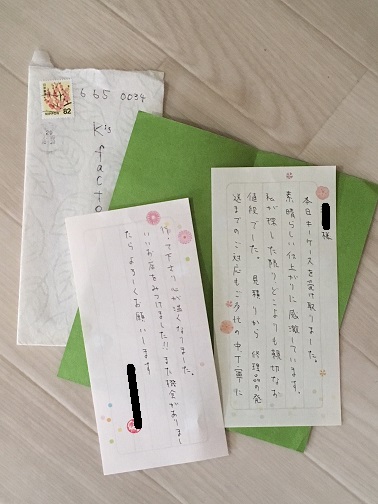 82
665 0034
Kis facto
様
本日キーケースを受け取りました。
素晴らしい仕上がりに感激しています。
私が探した限りどこよりも親切なお
値段でした。見積りから修理品の発
送までのご対応もご多忙の中、丁寧に
行って下さり心が温くなりました。
いいお店をみつけました!!また機会がありまし
たらよろしくお願いします